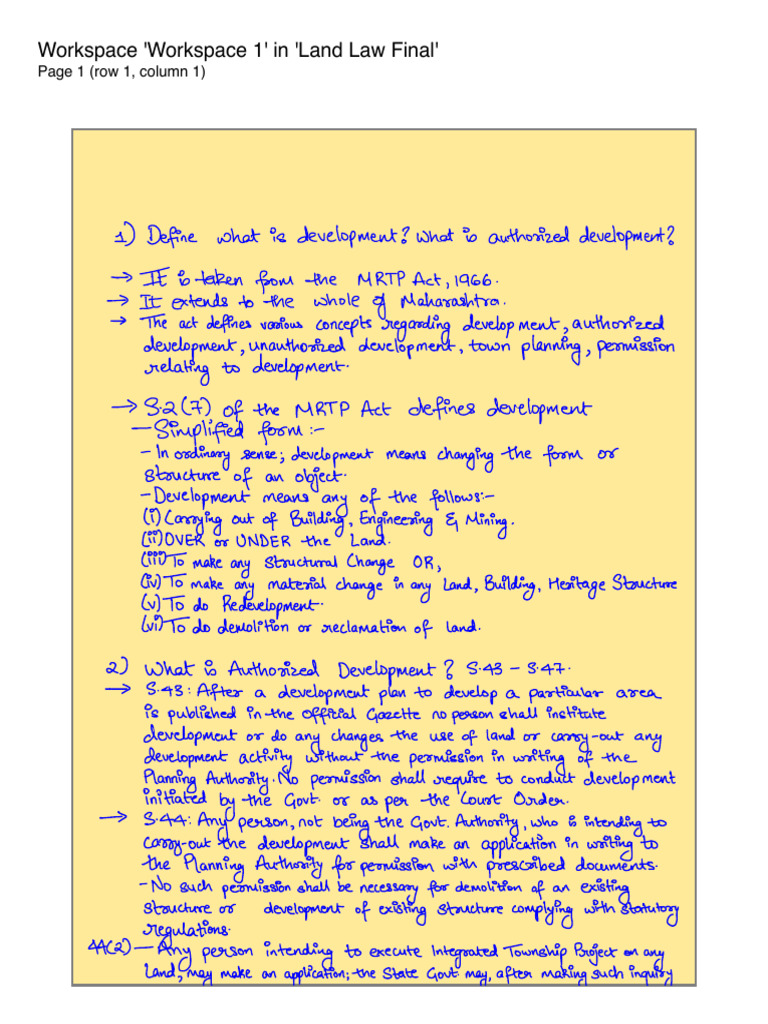 Workspace 'Workspace 1' in 'Land Law Final'
Page 1 (row 1, column 1)
1) Define what is development? What is authorized development?
→ It is taken from the MRTP Act, 1966.
→ It extends to the whole of Maharashtra.
→ The act defines various concepts regarding development, authorized
development, unauthorized development, town planning, permission
relating to development.
→ S.2(7) of the MRTP Act defines development
- Simplified form :-
- In ordinary sense; development means changing the form or
structure of an object.
- Development means any of the follows:-
(i) Carrying out of Building, Engineering & Mining.
(ii) OVER or UNDER the Land.
(iii) To make any Structural Change OR,
(iv) To make any material change in any Land, Building, Heritage Structure
(v) To do Redevelopment.
(vi) To do demolition or reclamation of land.
2) What is Authorized Development? S.43 - S.47.
→ S.43: After a development plan to develop a particular area
is published in the Official Gazette no person shall institute
development or do any changes the use of land or carry-out any
development activity without the permission in writing of the
Planning Authority. No permission shall require to conduct development
initiated by the Govt. or as per the Court Order.
→ S.44: Any person, not being the Govt. Authority, who is intending to
carry-out the development shall make an application in writing to
the Planning Authority for permission with prescribed documents.
- No such permission shall be necessary for demolition of an existing
structure or development of existing structure complying with statutory
regulations.
44(2) - Any person intending to execute Integrated Township Project on any
Land, may make an application; the State Govt. may, after making such inquiry